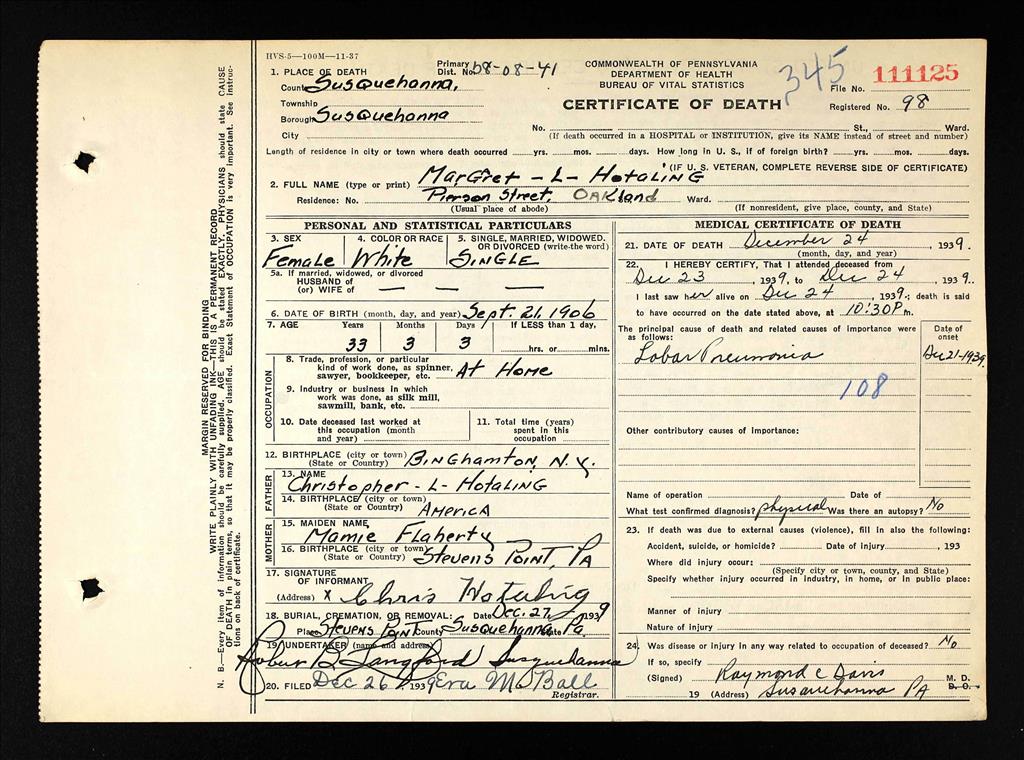 HVS-5—100M—11-37
COMMONWEALTH OF PENNSYLVANIA
DEPARTMENT OF HEALTH
BUREAU OF VITAL STATISTICS
CERTIFICATE OF DEATH
345
File No. 111125
Registered No. 98
Primary Dist. No. 58-08-41
1. PLACE OF DEATH
County Susquehanna,
Township
Borough Susquehanna
City
No. St., Ward.
(If death occurred in a HOSPITAL or INSTITUTION, give its NAME instead of street and number)
Length of residence in city or town where death occurred yrs. mos. days. How long in U. S., if of foreign birth? yrs. mos. days.
(IF U. S. VETERAN, COMPLETE REVERSE SIDE OF CERTIFICATE)
2. FULL NAME (type or print) Margret - L - Hotaling
Residence: No. Pierson Street, OAKland Ward.
(Usual place of abode) (If nonresident, give place, county, and State)
PERSONAL AND STATISTICAL PARTICULARS
3. SEX
Female
4. COLOR OR RACE
White
5. SINGLE, MARRIED, WIDOWED, OR DIVORCED (write the word)
SINGLE
5a. If married, widowed, or divorced
HUSBAND of
(or) WIFE of — — —
6. DATE OF BIRTH (month, day, and year) Sept. 21, 1906
7. AGE Years Months Days If LESS than 1 day,
33 3 3 hrs. or mins.
OCCUPATION
8. Trade, profession, or particular
kind of work done, as spinner,
sawyer, bookkeeper, etc. At Home
9. Industry or business in which
work was done, as silk mill,
sawmill, bank, etc.
10. Date deceased last worked at
this occupation (month
and year)
11. Total time (years)
spent in this
occupation
12. BIRTHPLACE (city or town)
(State or Country) BINGHAMTON, N.Y.
FATHER
13. NAME
Christopher - L - Hotaling
14. BIRTHPLACE (city or town)
(State or Country) AMERICA
MOTHER
15. MAIDEN NAME
Mamie Flaherty
16. BIRTHPLACE (city or town)
(State or Country) Stevens Point, PA
17. SIGNATURE
OF INFORMANT
(Address) X Chris Hotaling
18. BURIAL, CREMATION, OR REMOVAL: Date Dec. 27, 1939
Place Stevens Point County Susquehanna State Pa.
19. UNDERTAKER (name and address)
B Langford Susquehanna
20. FILED Dec 26, 1939 Eva M. Ball
Registrar.
MEDICAL CERTIFICATE OF DEATH
21. DATE OF DEATH December 24, 1939.
(month, day, and year)
22. I HEREBY CERTIFY, That I attended deceased from
Dec 23 1939, to Dec 24 1939.
I last saw her alive on Dec 24 1939.; death is said
to have occurred on the date stated above, at 10:30 P m.
The principal cause of death and related causes of importance were
as follows:
Date of onset
Lobar Pneumonia Dec 21-1939
108
Other contributory causes of importance:
Name of operation Date of
What test confirmed diagnosis? physical Was there an autopsy? No
23. If death was due to external causes (violence), fill in also the following:
Accident, suicide, or homicide? Date of injury, 193
Where did injury occur:
(Specify city or town, county, and State)
Specify whether injury occurred in industry, in home, or in public place:
Manner of injury
Nature of injury
24. Was disease or injury in any way related to occupation of deceased? No
If so, specify
(Signed) Raymond C Davis M. D.
D. O.
19 (Address) Susquehanna PA
MARGIN RESERVED FOR BINDING
WRITE PLAINLY WITH UNFADING INK—THIS IS A PERMANENT RECORD
N. B.—Every item of information should be carefully supplied. AGE should be stated EXACTLY. PHYSICIANS should state CAUSE
OF DEATH in plain terms, so that it may be properly classified. Exact Statement of OCCUPATION is very important. See instruc-
tions on back of certificate.